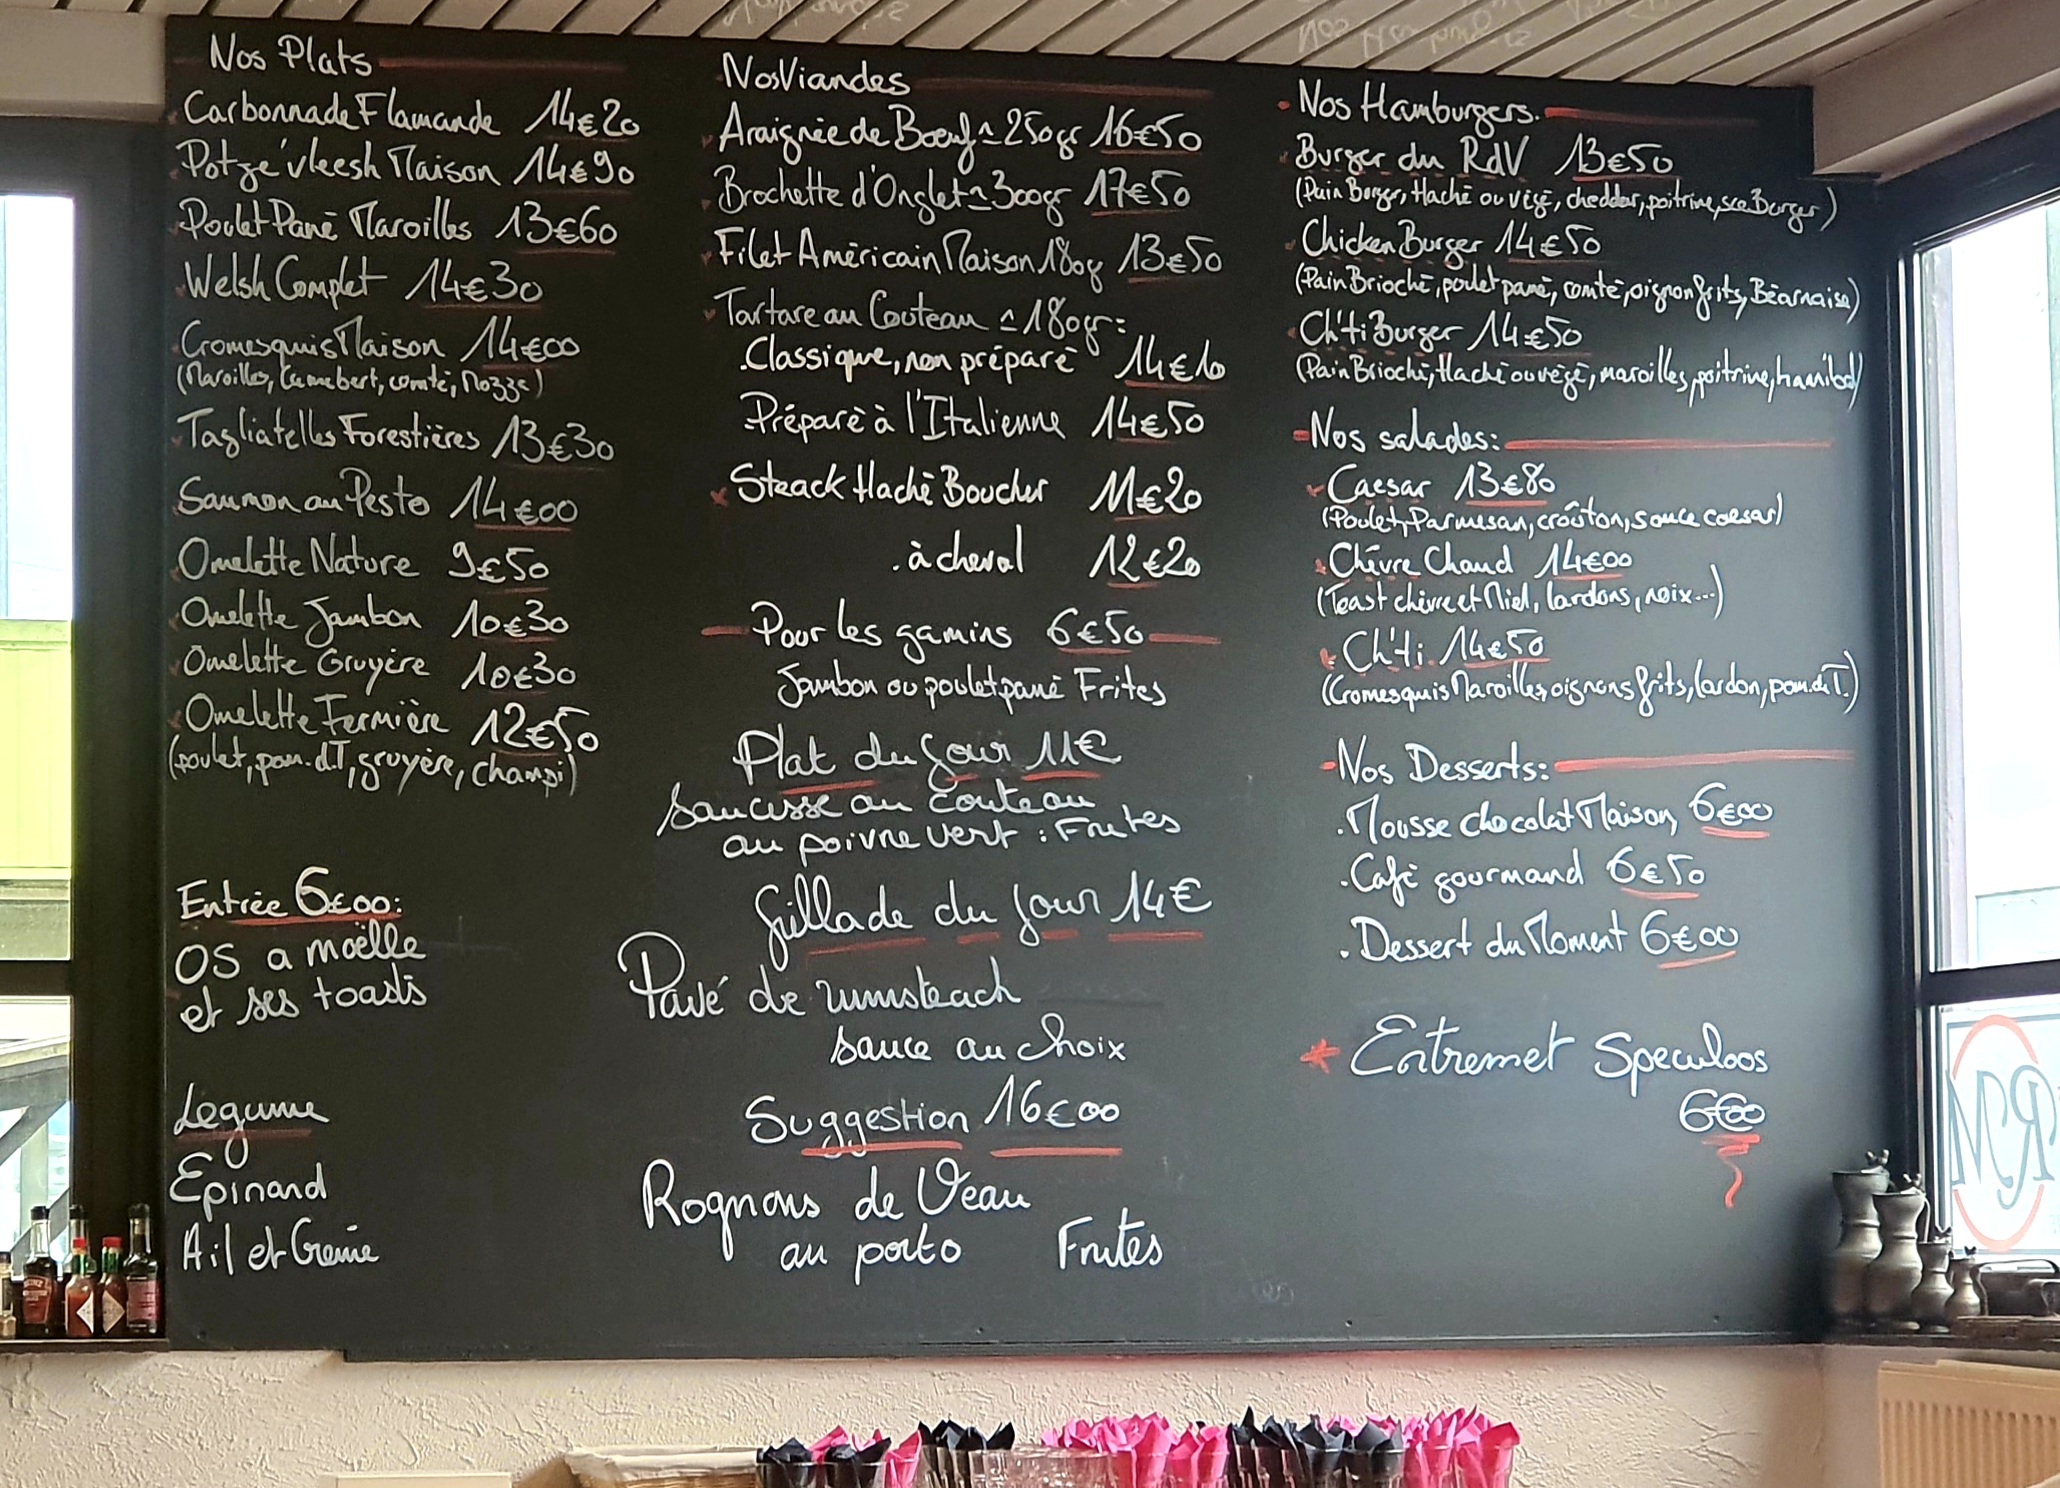 Nos Plats
Carbonnade Flamande 14€20
Potje'vleesh Maison 14€90
Poulet Pané Maroilles 13€60
Welsh Complet 14€30
Cromesquis Maison 14€00
(Maroilles, Camembert, comté, Mozza)
Tagliatelles Forestières 13€30
Saumon au Pesto 14€00
Omelette Nature 9€50
Omelette Jambon 10€30
Omelette Gruyère 10€30
Omelette Fermière 12€50
(poulet, pom.d.T, gruyère, champi)
Entrée 6€00:
OS a moëlle
et ses toasts
Legume
Epinard
Ail et Crème
Nos Viandes
Araignée de Bœuf ± 250gr 16€50
Brochette d'Onglet ± 300gr 17€50
Filet Américain Maison 180g 13€50
Tartare au Couteau ± 180gr:
.Classique, non préparé 14€10
.Préparé à l'Italienne 14€50
Steack Haché Boucher 11€20
.à cheval 12€20
Pour les gamins 6€50
Jambon ou poulet pané Frites
Plat du jour 11€
saucisse au couteau
au poivre vert : Frites
Grillade du jour 14€
Pavé de rumsteack
sauce au choix
Suggestion 16€00
Rognons de Veau
au porto Frites
- Nos Hamburgers.
Burger du RdV 13€50
(Pain Burger, Haché ou végé, cheddar, poitrine, sce Burger)
Chicken Burger 14€50
(Pain Brioché, poulet pané, comté, oignon frits, Béarnaise)
Ch'ti Burger 14€50
(Pain Brioché, Haché ou végé, maroilles, poitrine, hanibal)
-Nos salades:
Caesar 13€80
(Poulet, Parmesan, croûton, sauce caesar)
Chèvre Chaud 14€00
(Toast chèvre et Miel, lardons, noix...)
Ch'ti. 14€50
(Cromesquis Maroilles, oignons frits, lardon, pom.d.T.)
-Nos Desserts:
.Mousse chocolat Maison 6€00
.Café gourmand 6€50
.Dessert du Moment 6€00
* Entremet Speculoos
6€00